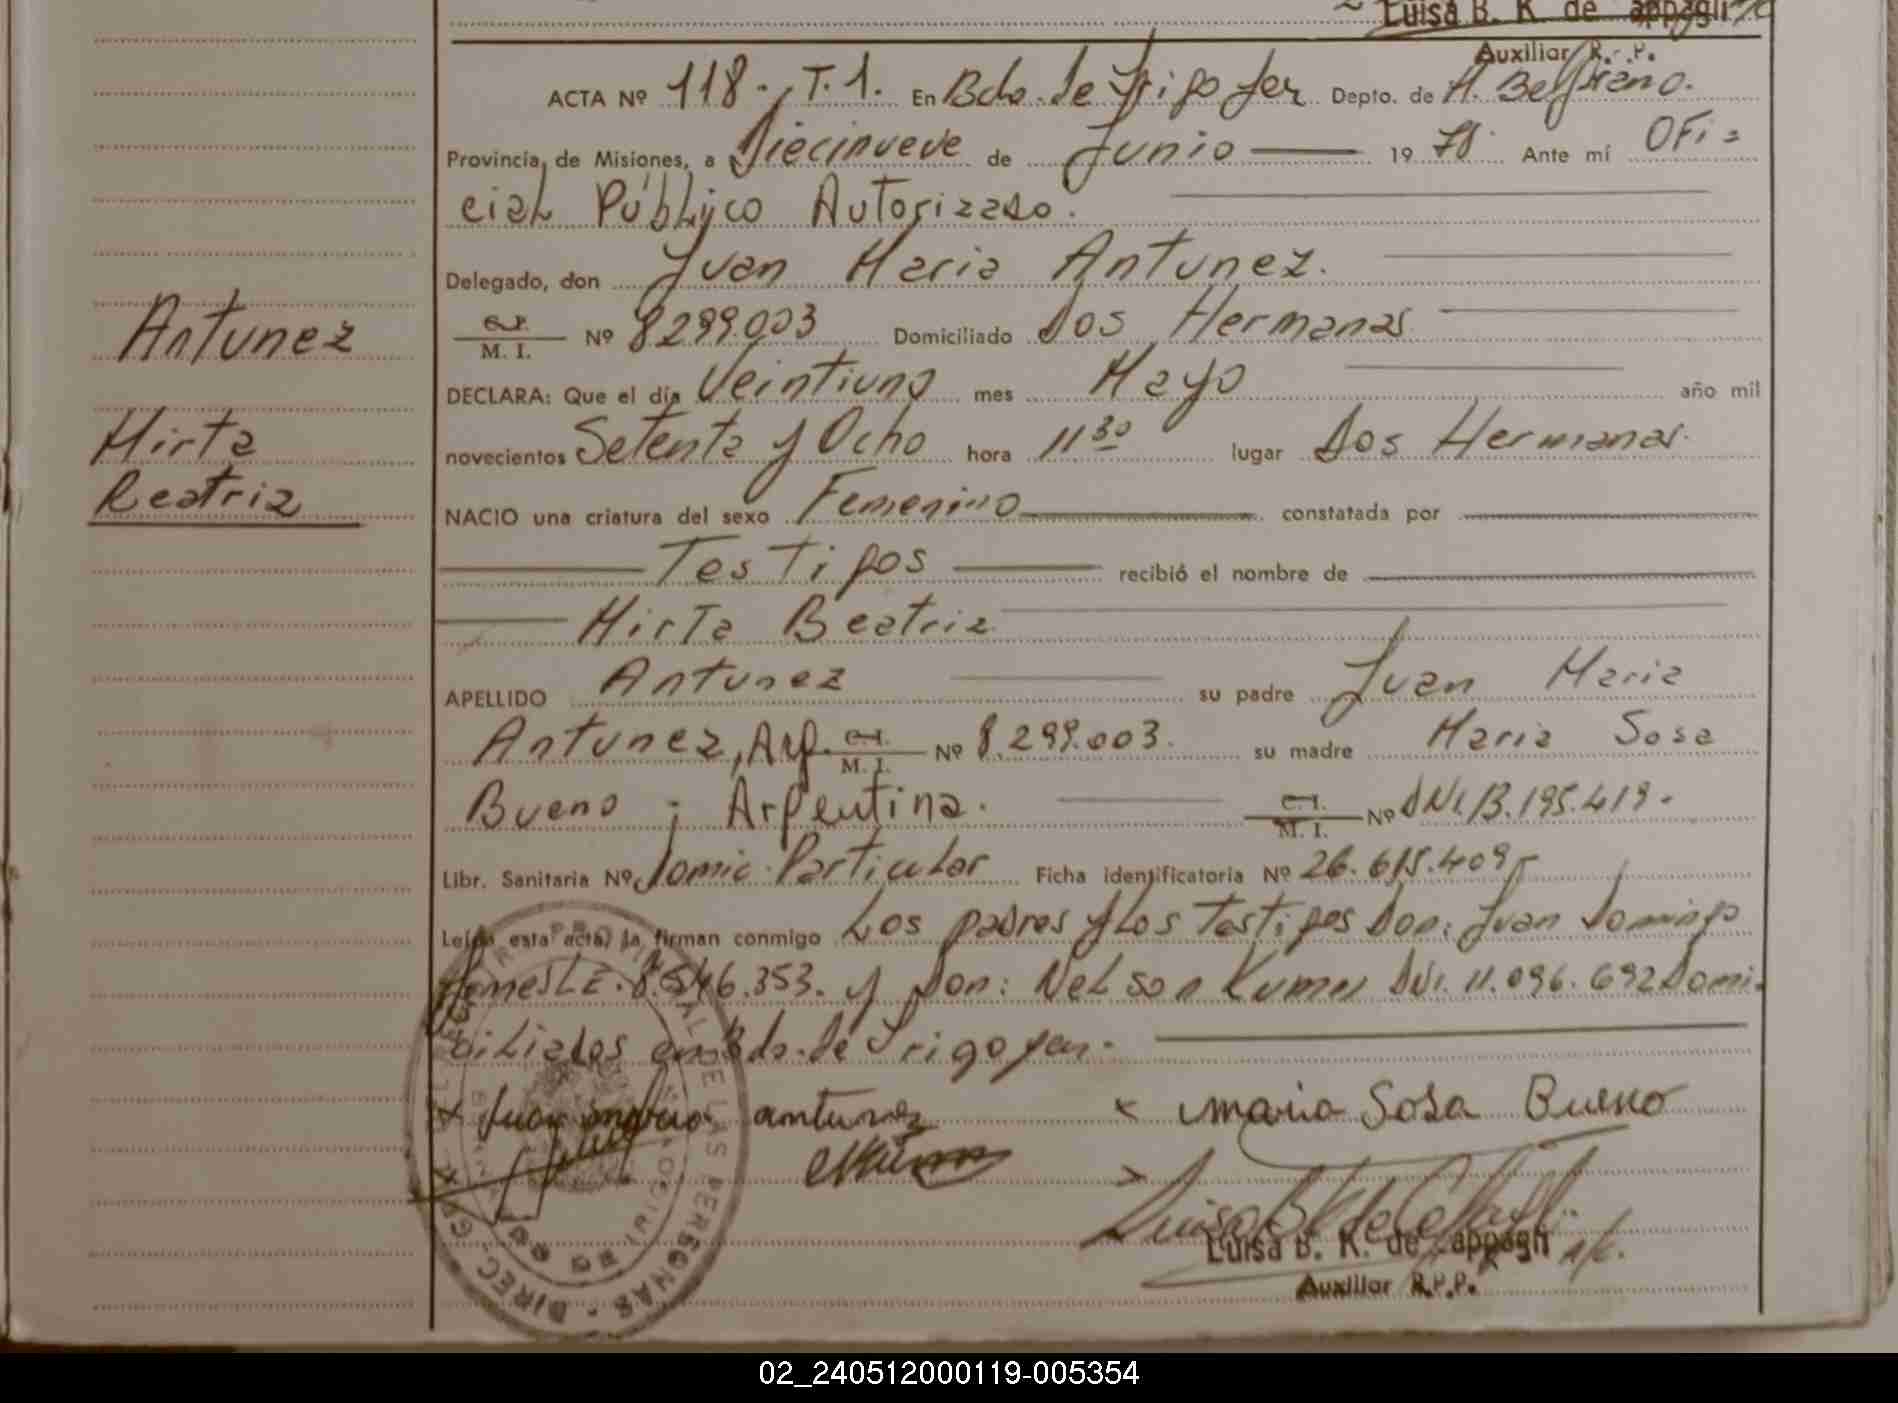 Luisa B. K. de Zappagli
Auxiliar R. P. P.
ACTA Nº 118. T.1. En Bdo. de Irigoyen Depto. de M. Belgrano.
Provincia, de Misiones, a Diecinueve de Junio 19 78 Ante mí OFi=
ciaL PúbLico Autorizado.
Delegado, don Juan Maria Antunez.
C.I. M. I. Nº 8299.003 Domiciliado Dos Hermanas
DECLARA: Que el día Veintiuno mes Mayo año mil
novecientos Setenta y Ocho hora 11 30 lugar Dos Hermanas.
NACIO una criatura del sexo Femenino constatada por
Testigos recibió el nombre de
Mirta Beatriz
APELLIDO Antunez su padre Juan Maria
Antunez, Arg. C.I. M. I. Nº 8.299.003. su madre Maria Sosa
Bueno ; Argentina. C.I. M. I. Nº DNI. 13.195.419.
Libr. Sanitaria Nº Domic. Particular Ficha identificatoria Nº 26.615.409
Leída esta acta, la firman conmigo Los padres y Los Testigos Don: Juan Domingo
LE. 8.546.353. y Don: NeLson DNI. 11.096.692 Domi-
ciLiados en Bdo. de Irigoyen.
x Juan maria antunez x maria Sosa Bueno
Luisa B. K. de Zappagli a/c.
Luisa B. K. de Zappagli
Auxiliar R.P.P.
Antunez
Mirta
Beatriz
DIREC. GRAL. DEL REG. PROVINCIAL DE LAS PERSONAS
02_240512000119-005354